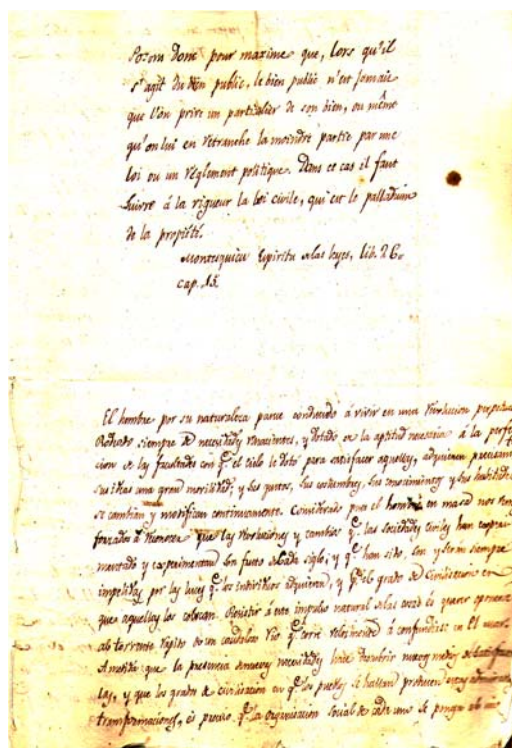 Posons donc pour maxime que, lors qu'il
s'agit du bien public, le bien public n'est jamais
que l'on prive un particulier de son bien, ou même
qu'on lui en retranche la moindre partie par une
loi ou un réglement politique. Dans ce cas il faut
suivre á la rigueur la loi civile, qui est le palladium
de la propieté.
Montesquieu Espiritu de las leyes, lib. 26.
cap. 15.
El hombre por su naturaleza parece condenado á vivir en una revolucion perpetua
Rodeado siempre de necesidades renacientes, y dotado de la aptitud necesaria á la perfec
cion de las facultades con q.e el cielo le dotó para satisfacer aquellas, adquieren precisam
una gran movilidad; y sus gustos, sus costumbres, sus conocimientos y sus habitudes
se cambian y modifican continuamente. Considerado pues el hombre en masa nos vemos
forzados á reconocer que las revoluciones y cambios q.e las sociedades civiles han
mentado y experimentan son fruto de cada siglo; y q.e han sido, son y serán siempre
impelidas por las luces q.e los individuos adquieren, y q.e el grado de civilizacion en
que aquellas los colocan. Resistir á este impulso natural de las cosas es querer oponerse
al torrente rapido de un caudaloso rio q.e corre velozmente á confundirse en el mar.
A medida que la presencia de nuevas necesidades hace descubrir nuevos medios de satisfacer
las, y que los grados de civilizacion en q.e los pueblos se hallan producen estas admirables
transformaciones, es preciso q.e la organizacion social de cada uno se ponga al